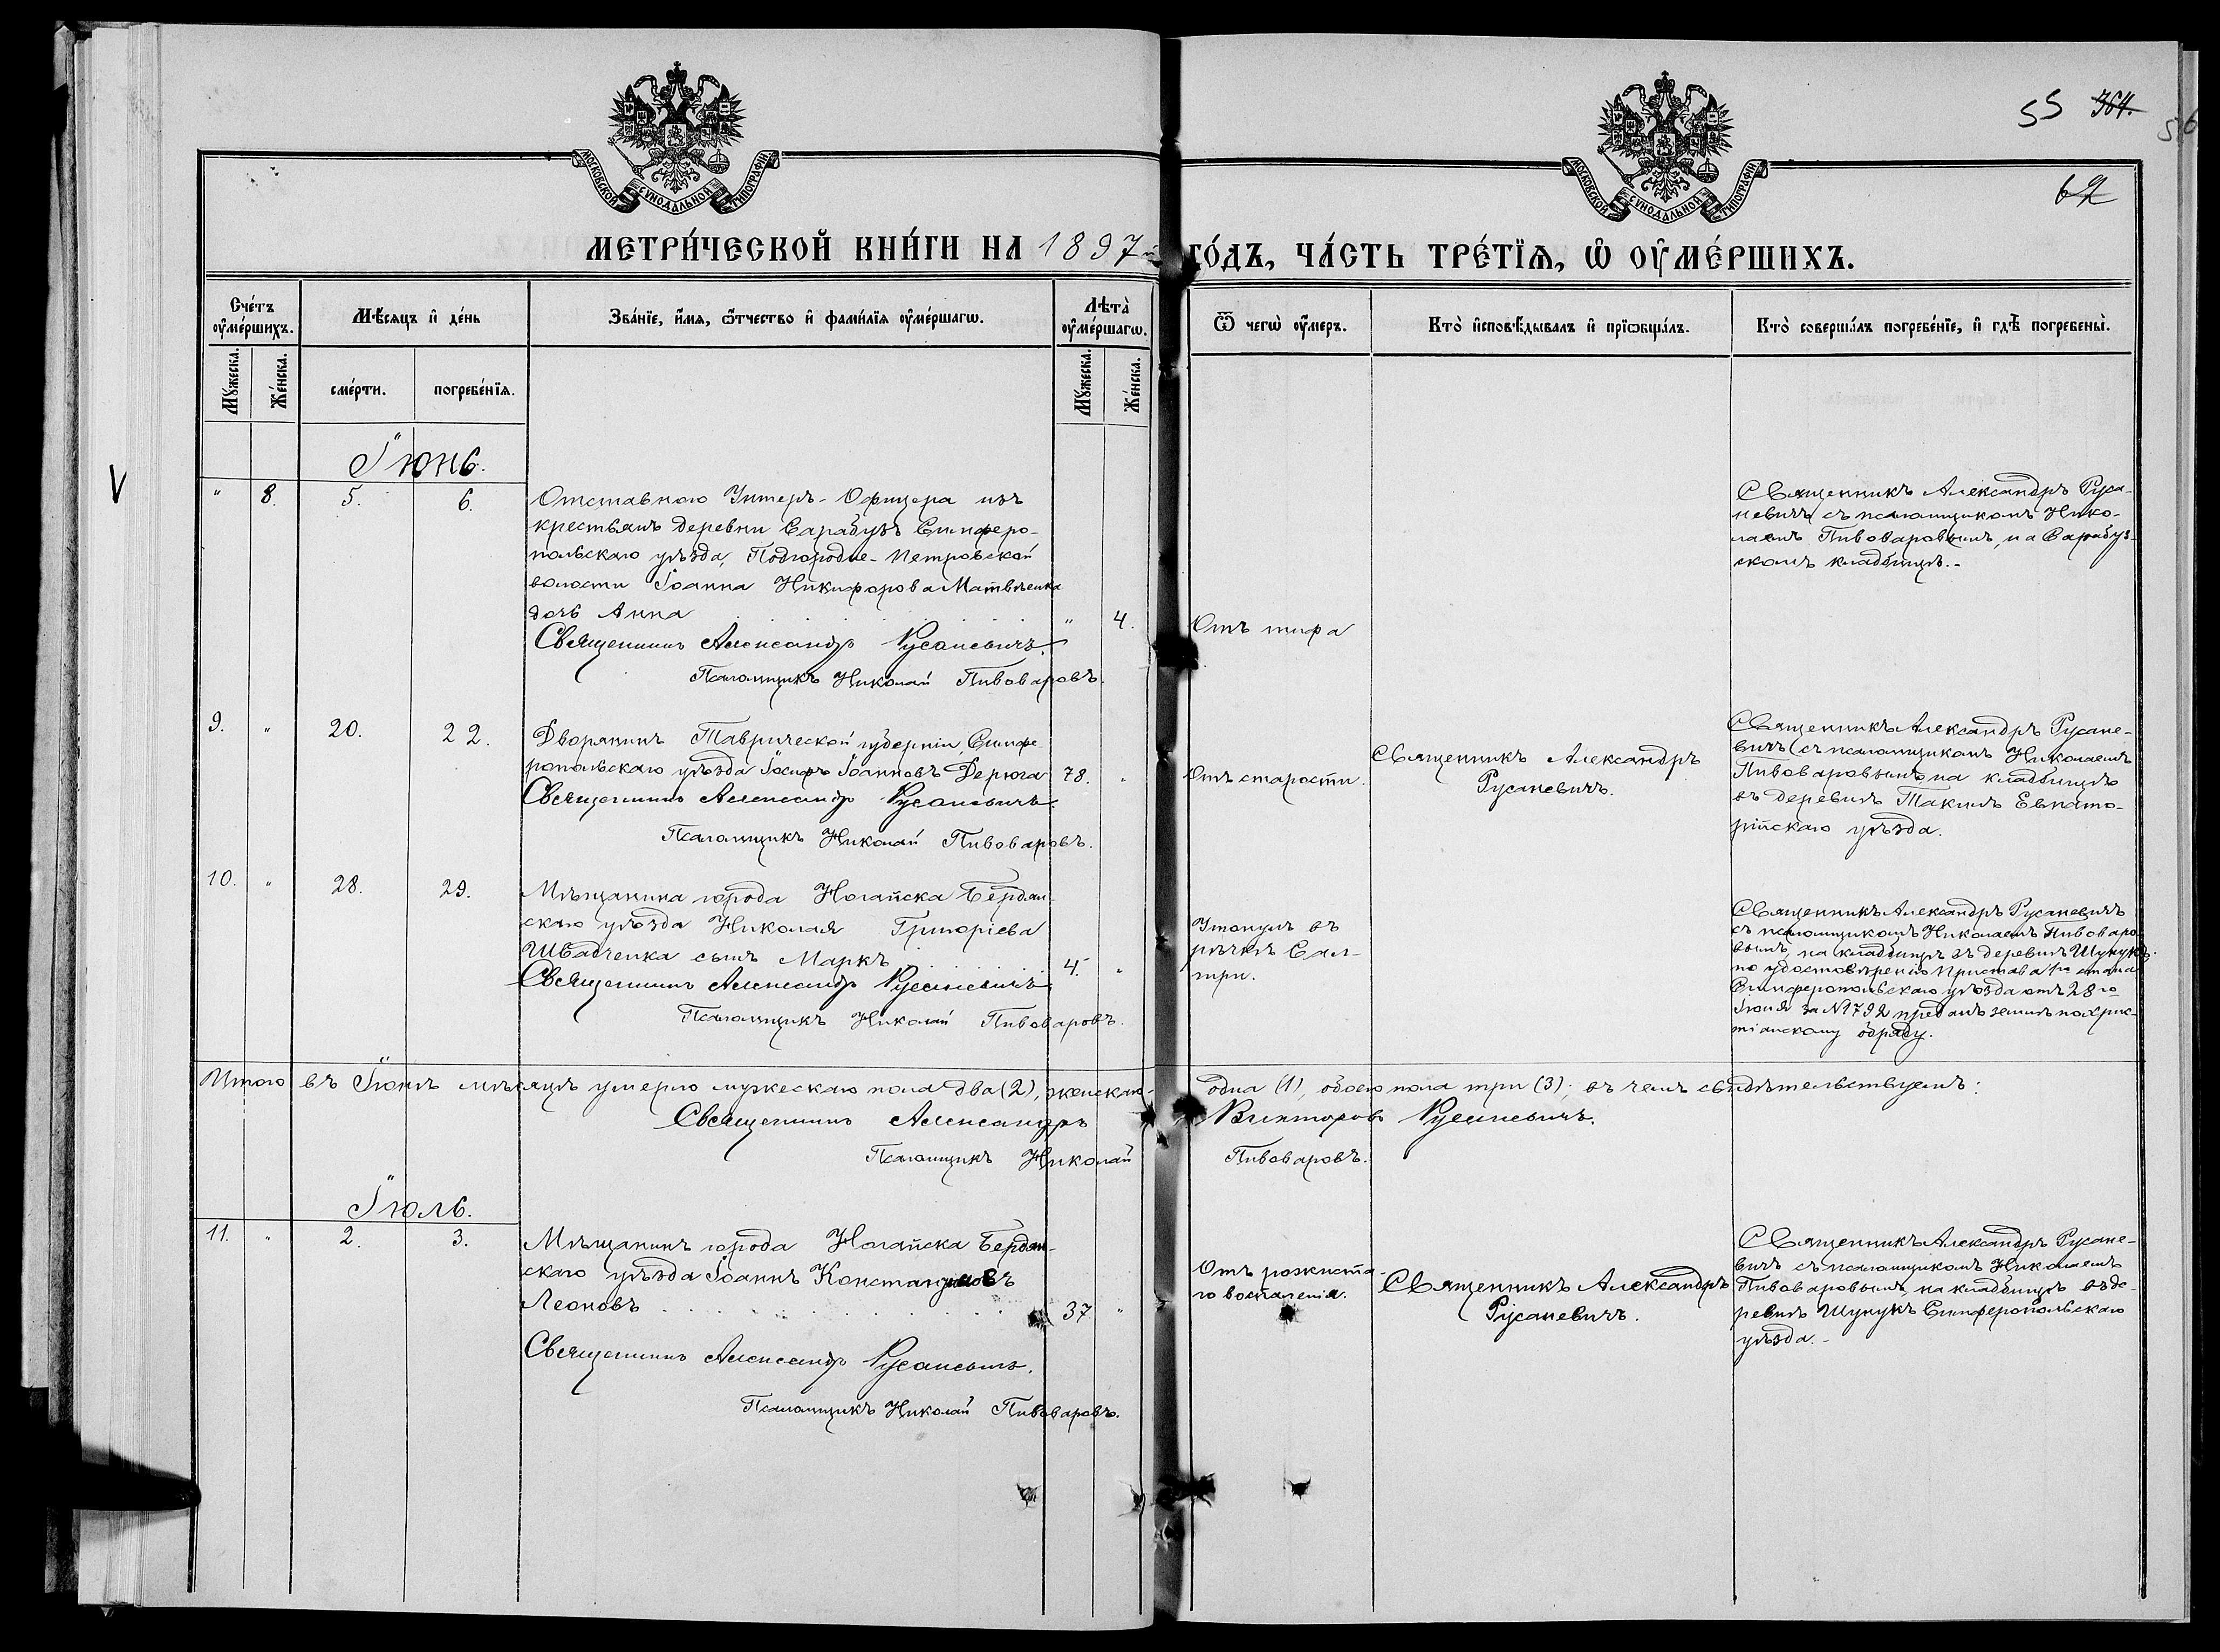 55 364.
56
62
МОСКОВСКОЙ СѴНОДАЛЬНОЙ ТИПОГРАФІИ
МОСКОВСКОЙ СѴНОДАЛЬНОЙ ТИПОГРАФІИ
МЕТРИ́ЧЕСКОЙ КНИ́ГИ НА 1897й ГО́ДЪ, ЧА́СТЬ ТРЕ́ТЇѦ, Ѡ҆ ОУ҆МЕ́РШИХЪ.
Сче́тъ оу҆ме́ршихъ.
Мꙋ́жеска.
Же́нска.
Мѣ́сяцъ и҆ де́нь
сме́рти.
погребе́нїѧ.
Зва́нїе, и҆́мѧ, ѻ҆́тчество и҆ фами́лїѧ оу҆ме́ршагѡ.
Лѣта̀ оу҆ме́ршагѡ.
Мꙋ́жеска.
Же́нска.
Ѿ чегѡ̀ оу҆́меръ.
Кто̀ и҆сповѣ́дывалъ и҆ прїѡбща́лъ.
Кто̀ соверша́лъ погребе́нїе, и҆ гдѣ̀ погребены̀.
V
Іюнь.
" 8. 5. 6.
Отставного Унтеръ-Офицера изъ
крестьянъ деревни Сарабузъ Симферо-
польскаго уѣзда, Подгородне-Петровской
волости Іоанна Никифорова Матвѣенка
дочь Анна " 4.
Священникъ Александръ Русаневичъ.
Псаломщикъ Николай Пивоваровъ.
Отъ тифа
Священникъ Александръ Руса-
невичъ съ псаломщикомъ Нико-
лаемъ Пивоваровымъ, на Сарабуз-
скомъ кладбищѣ.-
9. " 20. 22.
Дворянинъ Таврической губерніи, Симфе-
ропольскаго уѣзда Іосифъ Іоанновъ Дерюга 78. "
Священникъ Александръ Русаневичъ.
Псаломщикъ Николай Пивоваровъ.
Отъ старости.
Священникъ Александръ
Русаневичъ.
Священникъ Александръ Русане-
вичъ съ псаломщикомъ Николаемъ
Пивоваровымъ на кладбищѣ
въ деревнѣ Такилъ Евпато-
рійскаго уѣзда.
10. " 28. 29.
Мѣщанина города Ногайска Бердян-
скаго уѣзда Николая Григоріева
Швадченка сынъ Маркъ 4. "
Священникъ Александръ Русаневичъ
Псаломщикъ Николай Пивоваровъ.
Утонулъ въ
рѣчкѣ Сал-
гри.
Священникъ Александръ Русаневичъ
съ псаломщикомъ Николаемъ Пивоваро-
вымъ, на кладбищѣ въ деревнѣ Шунукъ.
по удостовѣренію Пристава 1го стана
Симферопольскаго уѣзда отъ 28го
Іюня за №1792 преданъ землѣ по хрис-
тіанскому обряду.
Итого въ Іюнѣ мѣсяцѣ умерло мужескаго пола два (2), женскаго- одна (1), обоего пола три (3); въ чемъ свидѣтельствуемъ:
Священникъ Александръ Викторовъ Русаневичъ.
Псаломщикъ Николай Пивоваровъ.
Іюль.
11. " 2. 3.
Мѣщанинъ города Ногайска Бердян-
скаго уѣзда Іоаннъ Константиновъ
Леоновъ 37 "
Священникъ Александръ Русаневичъ.
Псаломщикъ Николай Пивоваровъ.
Отъ рожиста-
го воспаленія.
Священникъ Александръ
Русаневичъ.
Священникъ Александръ Русане-
вичъ съ псаломщикомъ Николаемъ
Пивоваровымъ, на кладбищѣ въ де-
ревнѣ Шунукъ Симферопольскаго
уѣзда.-